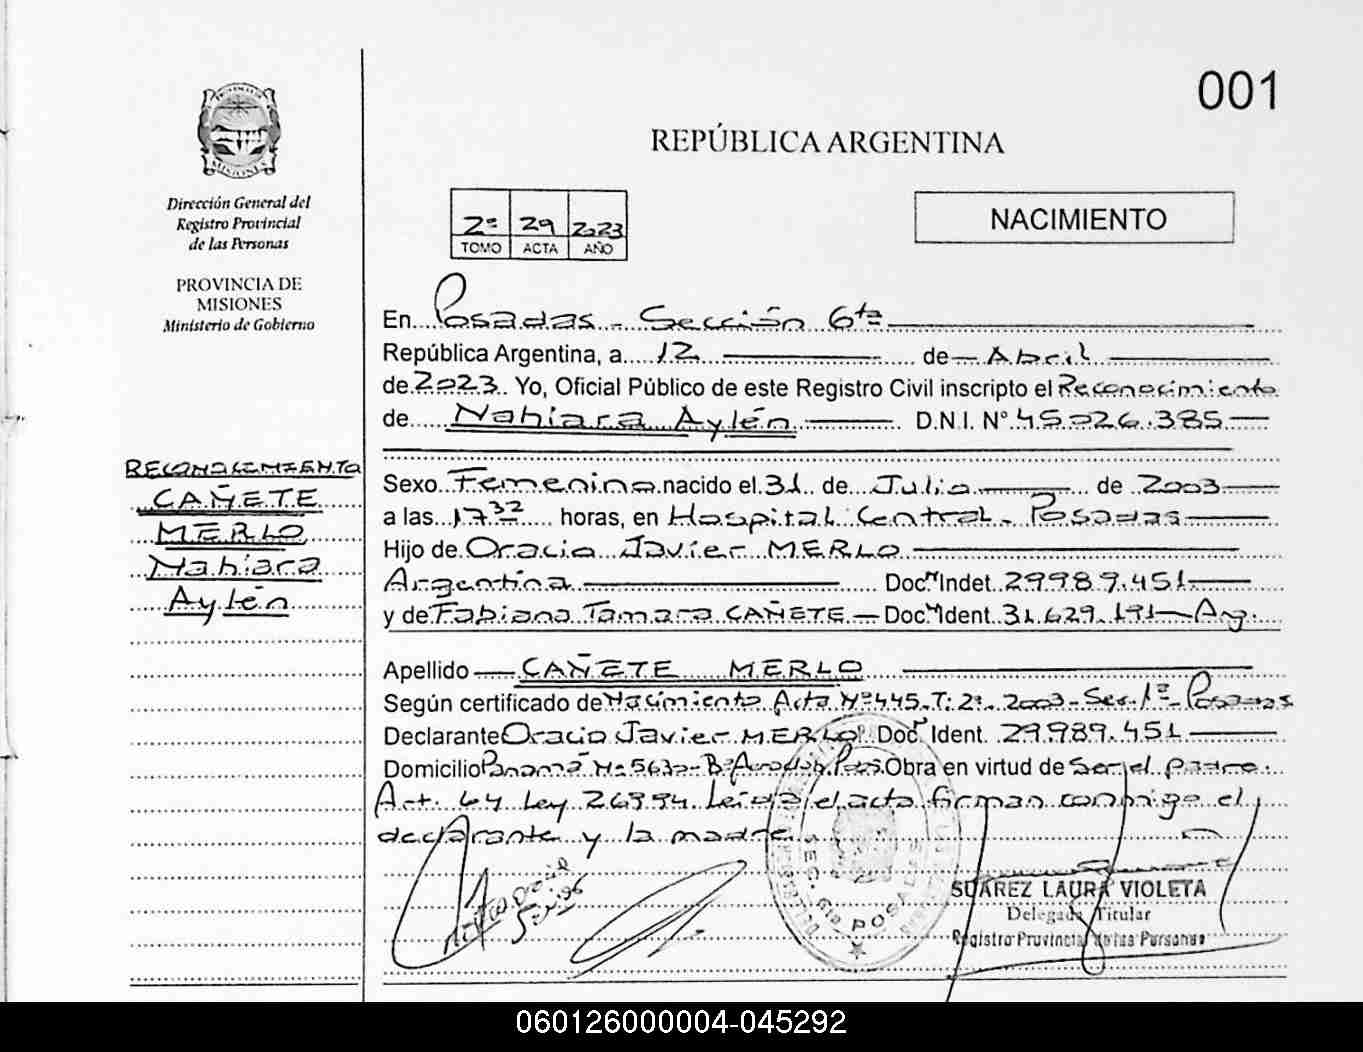 001
REPÚBLICA ARGENTINA
PROVINCIA DE
MISIONES
Dirección General del
Registro Provincial
de las Personas
PROVINCIA DE
MISIONES
Ministerio de Gobierno
2º 29 2023
TOMO ACTA AÑO
NACIMIENTO
En Posadas - Sección 6ta
República Argentina, a 12 de Abril
de 2023. Yo, Oficial Público de este Registro Civil inscripto el Reconocimiento
de Nahiara Aylén D.N.I. Nº 45.026.385
RECONOCIMIENTO
CAÑETE
MERLO
Nahiara
Aylén
Sexo Femenino nacido el 31 de Julio de 2003
a las 17 32 horas, en Hospital Central - Posadas
Hijo de Oracio Javier MERLO
Argentina Doc. Indet. 29989.451
y de Fabiana Tamara CAÑETE - Doc. Ident. 31.629.191 - Arg.
Apellido CAÑETE MERLO
Según certificado de Nacimiento Acta Nº 445. T: 2º. 2003 - Sec. 1º - Posadas
Declarante Oracio Javier MERLO Doc. Ident. 29.989.451
Domicilio Panamá Nº 5630 - Bº Obra en virtud de Ser el padre.
Art. 64 Ley 26994 Leida el acta firman conmigo el
declarante y la madre
SEC. 6ta POSADAS
SUAREZ LAURA VIOLETA
Delegada Titular
Registro Provincial de las Personas
060126000004-045292